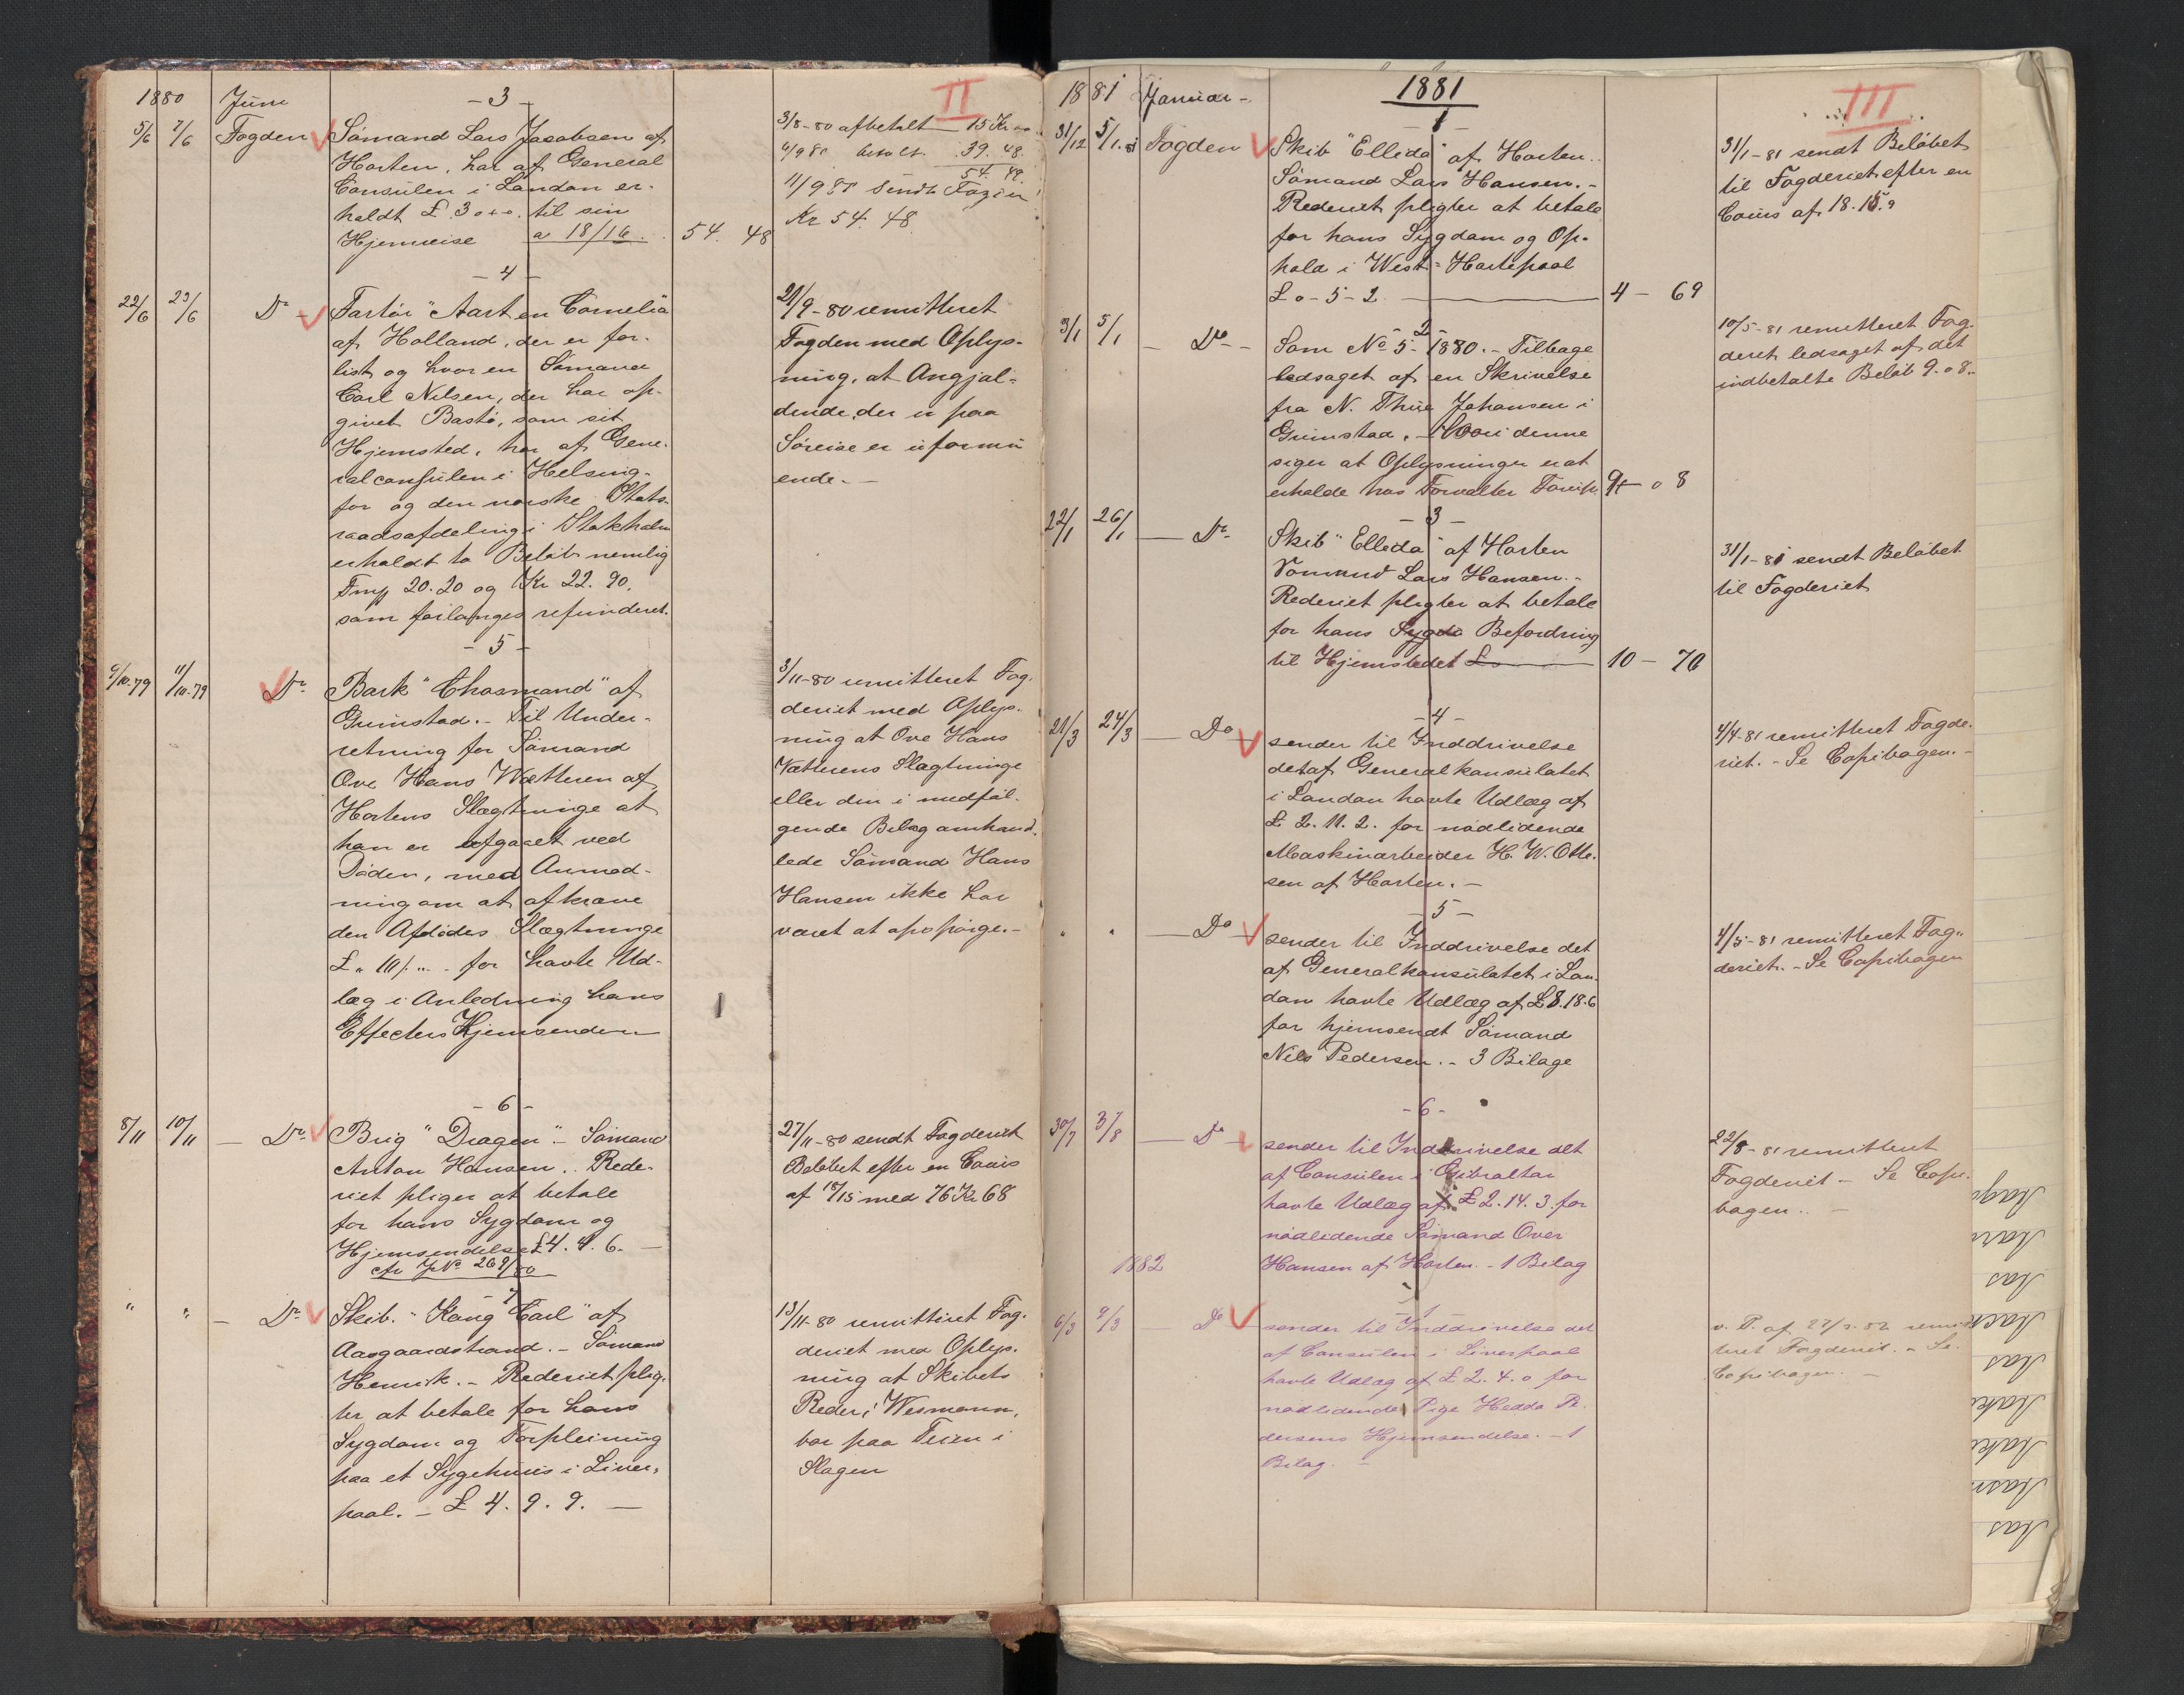 1880 Juni
II
- 3 -
5/6 7/6 Fogden Sømand Lars Jacobsen af
Horten, har af General
Consulen i London er-
holdt £ 3 o " o. til sin
Hjemreise a 18/16. 54. 48
3/8-80 afbetalt 15 Kr
4/9 80 betalt. 39. 48.
54. 48.
11/9 80 Sendt Fogden
Kr 54. 48
- 4 -
22/6 23/6 Do - Fartöi "Aart en Cornelia
af Holland, der er for-
list og hvor en Sømand
Carl Nilsen, der har op-
givet Bastö, som sit
Hjemsted, har af Gene-
ralconsulen i Helsing-
for og den norske Stats-
raadsafdeling i Stokholm
erholdt to Beløb nemlig
Fmk 20.20 og Kr 22. 90.
som forlanges refunderet.
21/9-80 remitteret
Fogden med Oplys-
ning, at Angjæl-
dende, der er paa
Søreise er uformu
ende. -
- 5 -
9/10.79 11/10.79 Do Bark "Chasmand" af
Grimstad. - Til Under-
retning for Sømand
Ove Hans Wætteren af
Hortens Slægtninge at
han er afgaaet ved
Døden, med Anmod-
ning om at afkræve
den Afdødes Slægtninge
£ " 10/. " . for havte Ud-
læg i Anledning hans
Effecters Hjemsenden
3/11-80 remitteret Fog-
deriet med Oplys-
ning at Ove Hans
Vætterens Slægtninge
eller den i medføl-
gende Bilag omhand-
lede Sømand Hans
Hansen ikke har
været at opspørge. -
- 6 -
8/11 10/11 - Do Brig "Dragen" - Sømand
Anton Hansen. Rede-
riet pliger at betale
for hans Sygdom og
Hjemsendelse £ 4. 4. 6. -
cfr JNo 269/80
27/11-80 sendt Fogderiet
Beløbet efter en Cours
af 18/15 med 76 Kr 68
- 7
" " - Do Skib. "Kong Carl" af
Aasgaardstrand. - Sømand
Henrik. - Rederiet plig-
ter at betale for hans
Sygdom og Forpleining
paa et Sygehuus i Liver-
pool. - £ 4. 9. 9. -
13/11-80 remitteret Fog-
deriet med Oplys-
ning at Skibets
Reder, Wesmann,
bor paa Teien i
Slagen
1881 Januar -
1881
III
- 1 -
31/12 5/1.81 Fogden Skib "Ellida" af Horten.
Sømand Lars Hansen. -
Rederiet pligter at betale
for hans Sygdom og Op-
hold i West-Hartepool
£ 0 - 5 - 2. 4 - 69
31/1-81 sendt Beløbet
til Fogderiet efter en
Cours af 18.15.9
- 2 -
3/1 5/1 - Do - Som No 5 - 1880. - Tilbage
ledsaget af en Skrivelse
fra N. Thue Johansen i
Grimstad. - Hvori denne
siger at Oplysninger er at
erholde hos Forvalter 9 - 08
10/5-81 remitteret Fog-
deriet ledsaget af det
indbetalte Beløb 9.08.
- 3 -
22/1 26/1 - Do Skib "Ellida" af Horten
Sømand Lars Hansen. -
Rederiet pligter at betale
for hans Sygdo Befordring
til Hjemstedet £ 10 - 70
31/1-81 sendt Beløbet
til Fogderiet
- 4 -
21/3 24/3 - Do sender til Inddrivelse
det af Generalkonsulatet
i London havte Udlæg af
£ 2. 11. 2. for nødlidende
Maskinarbeider H. W. Otte-
sen af Horten. -
4/4-81 remitteret Fogde-
riet. - Se Copibogen. -
- 5 -
" " - Do sender til Inddrivelse det
af Generalkonsulatet i Lon-
don havte Udlæg af £ 8.18.6
for hjemsendt Sømand
Nils Pedersen. - 3 Bilage
4/5-81 remitteret Fog-
deriet. - Se Copibogen
- 6 -
30/7 3/8 - Do sender til Inddrivelse det
af Consulen i Gibraltar
havte Udlæg af £ 2. 14. 3. for
nødlidende Sømand Over
Hansen af Horten. - 1 Bilag
22/8-81 remitteret
Fogderiet - Se Copi-
bogen.. -
1882
- 1
6/3 9/3 - Do sender til Inddrivelse det
af Consulen i Liverpool
havte Udlæg af £ 2. 4. 0 for
nødlidende Pige Hedda Pe-
dersens Hjemsendelse. - 1
Bilag. -
v. P. af 22/3-82 remit-
teret Fogderiet. - Se
Copibogen. -